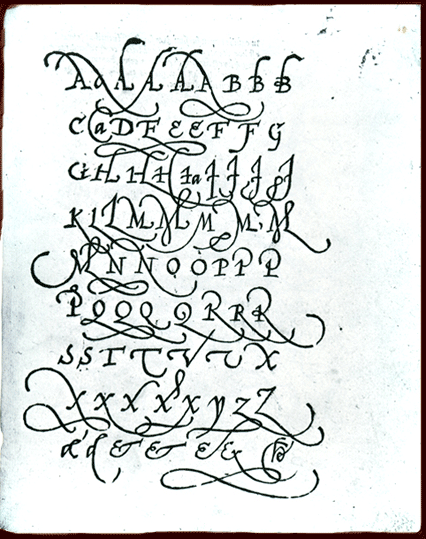 A A A A A A B B B
C a D E E E F F G
G H H H Ha I I J J
K L L M M M M M M
N N N O O P P P
P Q Q Q Q R R R
S S T T V V X
X X X X X y z Z
& & & & &